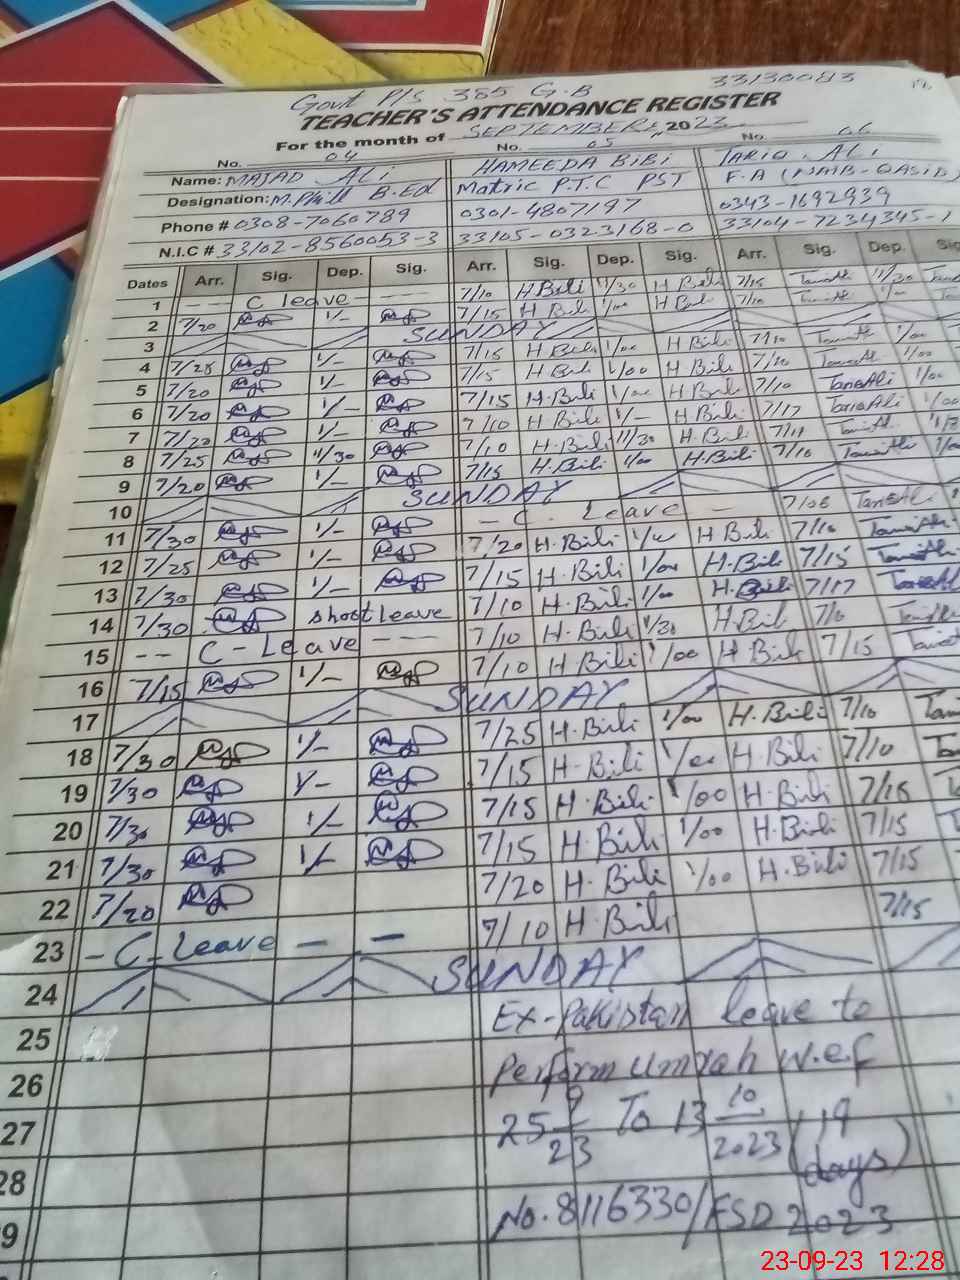 Govt P/S 385 G.B 33130083
TEACHER'S ATTENDANCE REGISTER
For the month of SEPTEMBER, 2023
No. 04 No. 05 No. 06
Name: MAJAD ALi HAMEEDA BiBi TARiQ ALi
Designation: M.Phill B.Ed Matric P.T.C PST F.A (NAIB-QASID)
Phone # 0308-7060789 0301-4807197 0343-1692939
N.I.C # 33102-8560053-3 33105-0323168-0 33104-7234345-1
Dates Arr. Sig. Dep. Sig. Arr. Sig. Dep. Sig. Arr. Sig. Dep. Sig
1 -- C leave --- 7/10 H Bibi 11/30 H Bibi 7/15 11/30
2 7/20 1/- 7/15 H Bibi 1/00 H Bibi 7/10 1/00
3 SUNDAY
4 7/25 1/- 7/15 H Bibi 1/00 H Bibi 7/10 1/00
5 7/20 1/- 7/15 H Bibi 1/00 H Bibi 7/10 1/00
6 7/20 1/- 7/15 H Bibi 1/00 H Bibi 7/10 TariqAli 1/00
7 7/20 1/- 7/10 H Bibi 1/- H Bibi 7/17 TariqAli 1/00
8 7/25 11/30 7/10 H Bibi 11/30 H Bibi 7/11
9 7/20 1/- 7/15 H.Bibi 1/00 H.Bibi 7/10
10 SUNDAY
11 7/30 1/- - C. Leave - 7/08 TariqAli
12 7/25 1/- 7/20 H.Bibi H.Bibi 7/10
13 7/30 1/- 7/15 H.Bibi 1/00 H.Bibi 7/15
14 7/30 short Leave 7/10 H.Bibi 1/00 H.Bibi 7/17
15 -- C-Leave --- 7/10 H.Bibi 1/30 H.Bibi 7/10
16 7/15 1/- 7/10 H.Bibi 1/00 H.Bibi 7/15
17 SUNDAY
18 7/30 1/- 7/25 H.Bibi 1/00 H.Bibi 7/10
19 7/30 1/- 7/15 H.Bibi 1/00 H.Bibi 7/10
20 7/30 1/- 7/15 H.Bibi 1/00 H.Bibi 7/15
21 7/30 1/- 7/15 H.Bibi 1/00 H.Bibi 7/15
22 7/20 7/20 H.Bibi 1/00 H.Bibi 7/15
23 - C-Leave - - 7/10 H.Bibi 7/15
24 SUNDAY
25 Ex-Pakistan leave to
26 Perform Umrah w.e.f
27 25 9/23 To 13 10/2023 (19
28 days)
9 No. 8116330/FSD 2023
23-09-23 12:28